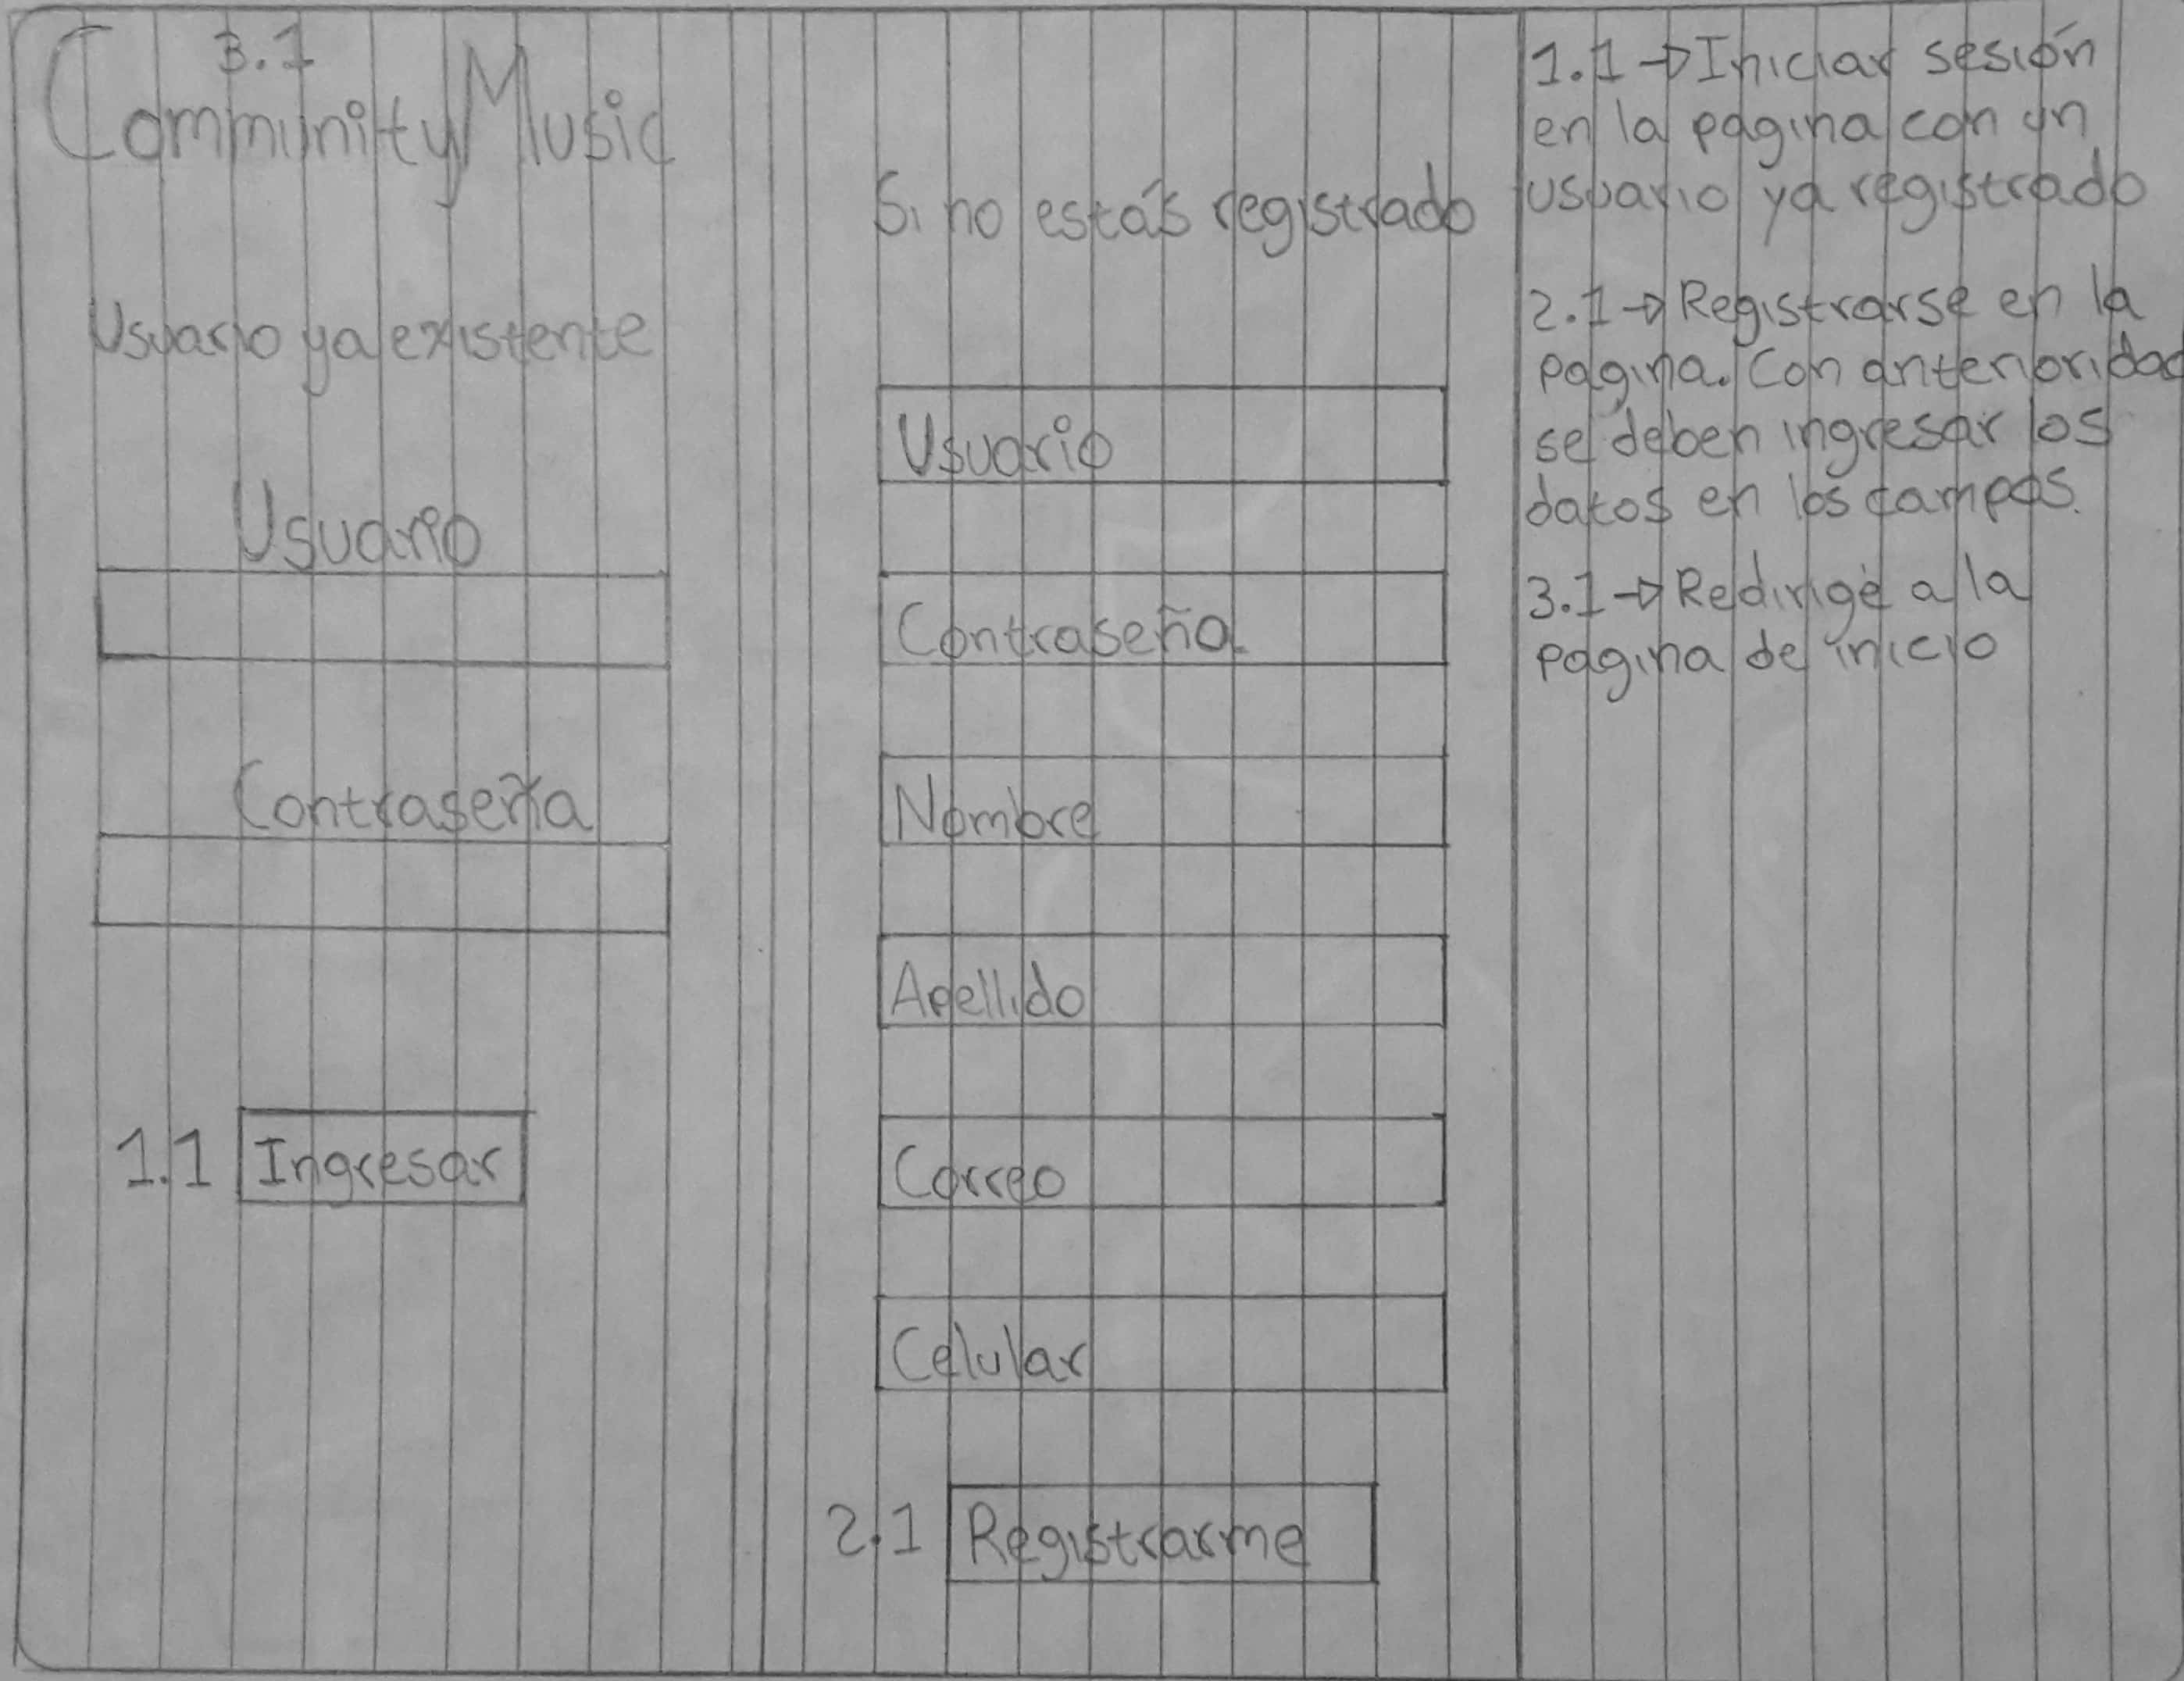 3.1
Community Music
Usuario ya existente
Usuario
Contraseña
1.1 Ingresar
Si no estás registrado
Usuario
Contraseña
Nombre
Apellido
Correo
Celular
2.1 Registrarme
1.1 → Iniciar sesión
en la pagina con un
usuario ya registrado
2.1 → Registrarse en la
pagina. Con anterioridad
se deben ingresar los
datos en los campos.
3.1 → Redirige a la
pagina de inicio